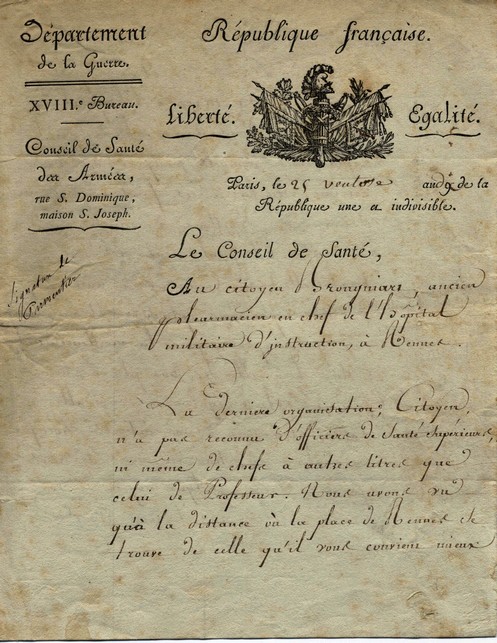 Département
de la Guerre.
XVIII.e Bureau.
Conseil de Santé
des Armées,
rue S. Dominique,
maison S. Joseph.
République française.
Liberté. Egalité.
Paris, le 25 ventose an 9e de la
République une et indivisible.
Signature de
Parmentier
Le Conseil de Santé,
Au citoyen Brongniart, ancien
pharmacien en chef de l'hôpital
militaire d'instruction, à Rennes.
La derniere organisation, Citoyen,
n'a pas reconnu d'officiers de Santé Supérieurs,
ni même de chefs à autres titres que
celui de Professeur. Nous avons vu
qu'à la distance où la place de Rennes se
trouve de celle qu'il vous convient mieux